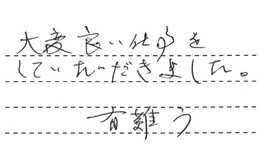 大変良い仕事を
していただきました。
有難う